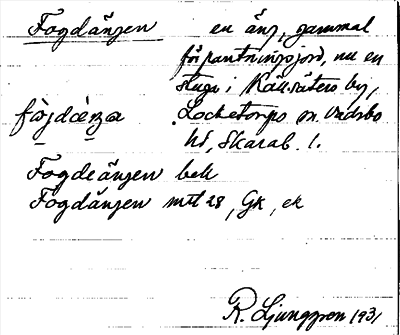 Fogdängen en äng, gammal
förpantningsjord, nu en
stuga i Källsäters by,
fò̱jdæ̀ŋa Locketorps sn. Vadsbo
hd, Skarab. l.
Fogdeängen bek
Fogdängen mtl 28, Gk, ek
R. Ljunggren 1931